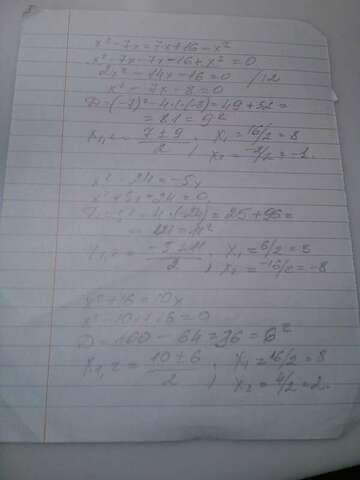 x² - 7x = 7x + 16 - x²
x² - 7x - 7x - 16 + x² = 0
2x² - 14x - 16 = 0 /:2
x² - 7x - 8 = 0
D = (-7)² - 4·1·(-8) = 49 + 32 =
= 81 = 9²
x₁,₂ = (7 ± 9)/2 ; x₁ = 16/2 = 8
x₂ = -2/2 = -1.
x² - 24 = -5x
x² + 5x - 24 = 0
D = 5² - 4·(-24) = 25 + 96 =
= 121 = 11²
x₁,₂ = (-5 ± 11)/2 ; x₁ = 6/2 = 3
x₂ = -16/2 = -8
x² + 16 = 10x
x² - 10x + 16 = 0
D = 100 - 64 = 36 = 6²
x₁,₂ = (10 ± 6)/2 ; x₁ = 16/2 = 8
x₂ = 4/2 = 2.